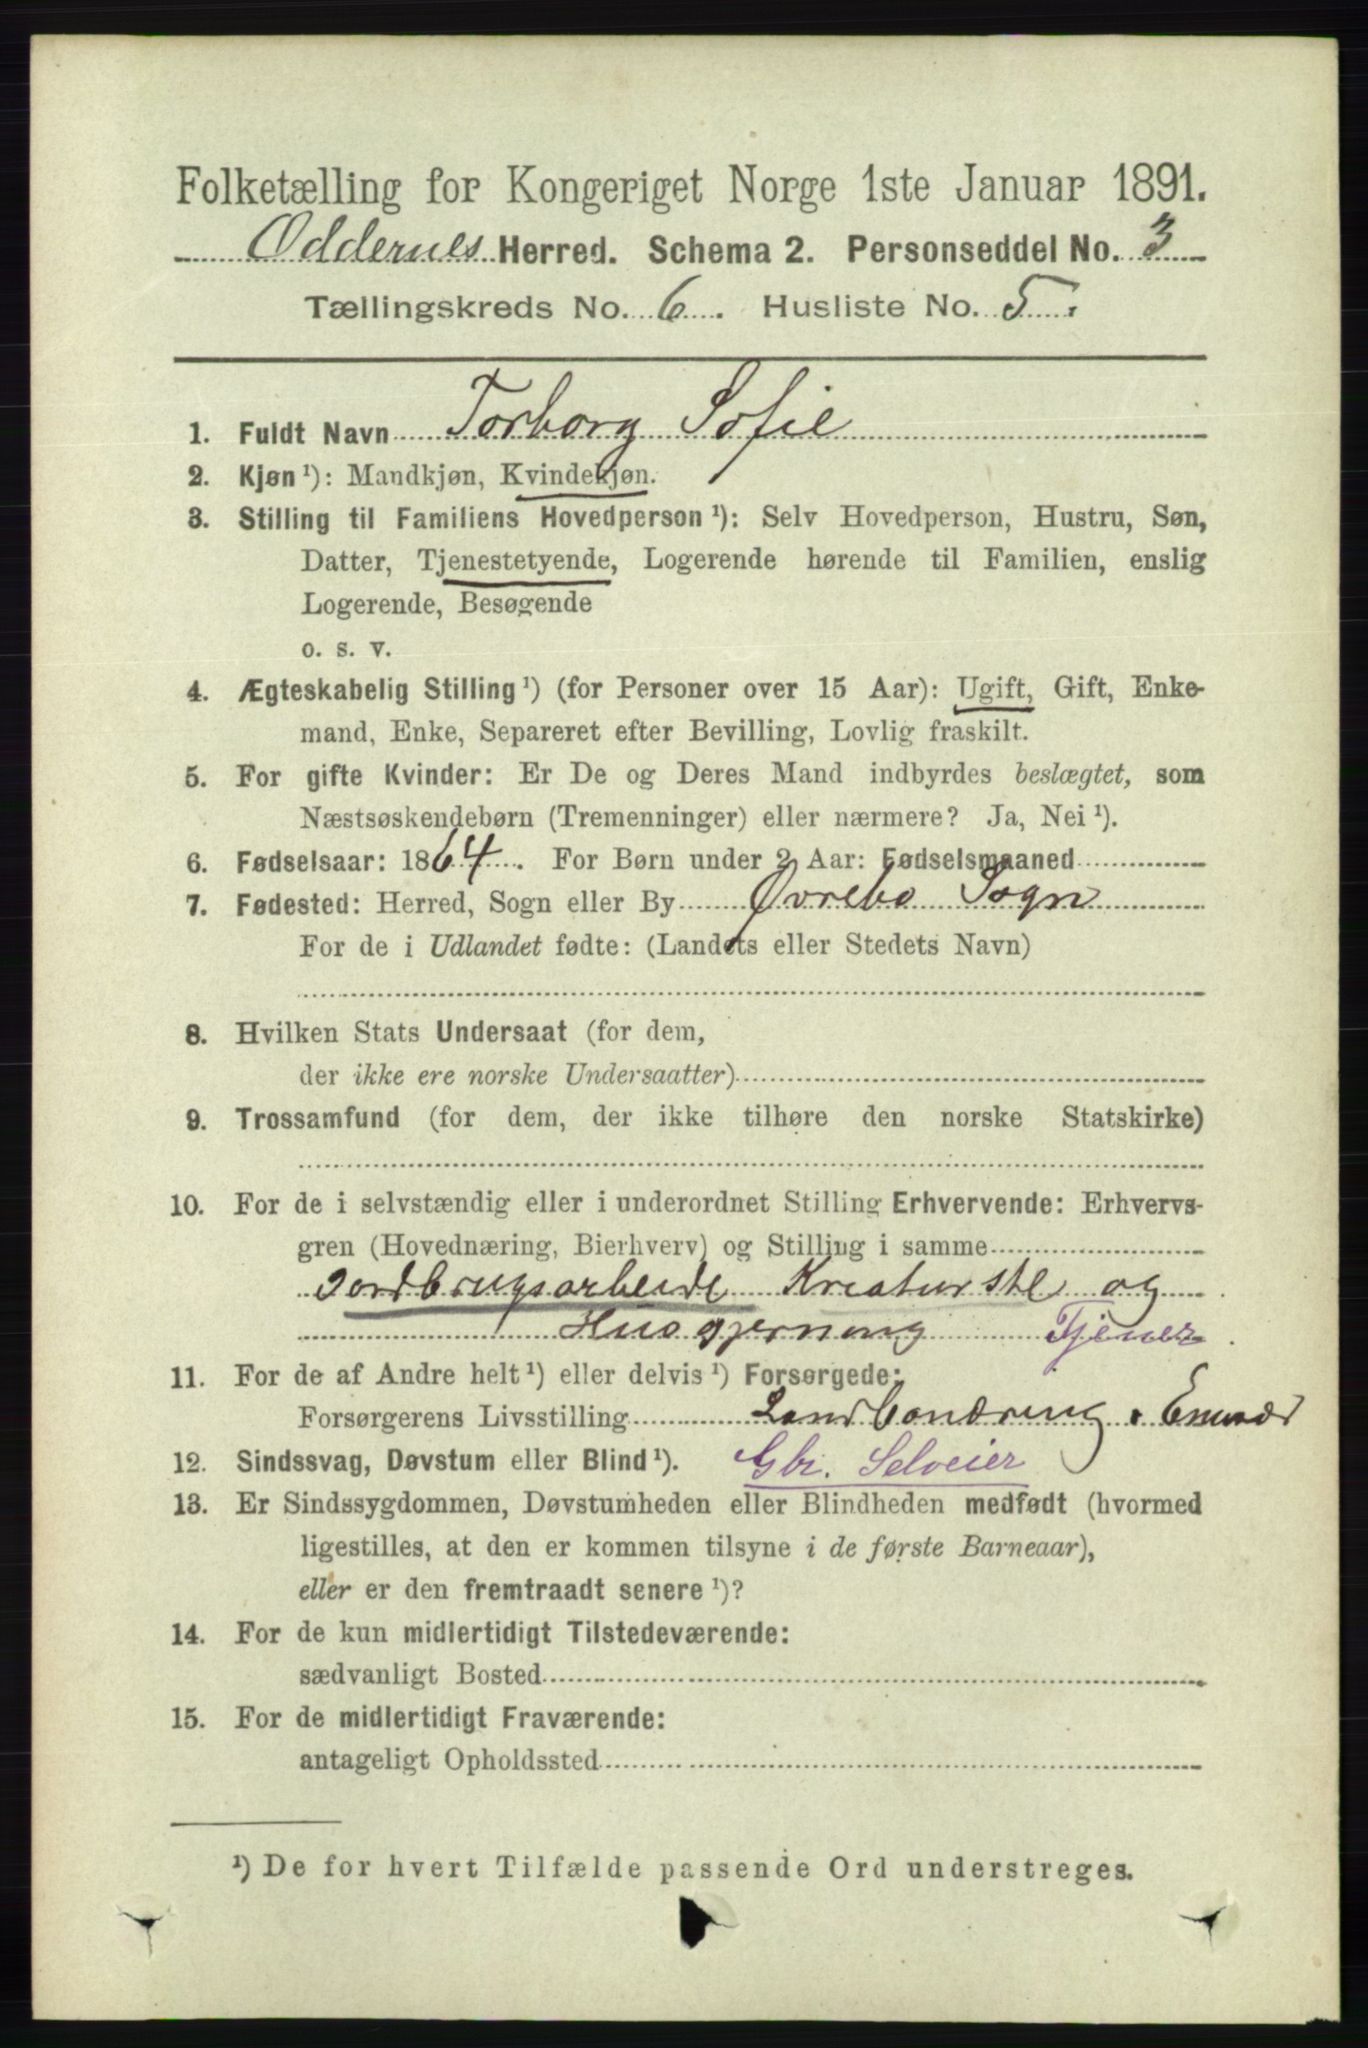 Folketælling for Kongeriget Norge 1ste Januar 1891.
Oddernes Herred. Schema 2. Personseddel No. 3
Tællingskreds No. 6. Husliste No. 5.
1. Fuldt Navn Torborg Sofie
2. Kjøn ¹): Mandkjøn, Kvindekjøn.
3. Stilling til Familiens Hovedperson ¹): Selv Hovedperson, Hustru, Søn,
Datter, Tjenestetyende, Logerende hørende til Familien, enslig
Logerende, Besøgende
o. s. v.
4. Ægteskabelig Stilling ¹) (for Personer over 15 Aar): Ugift, Gift, Enke-
mand, Enke, Separeret efter Bevilling, Lovlig fraskilt.
5. For gifte Kvinder: Er De og Deres Mand indbyrdes beslægtet, som
Næstsøskendebørn (Tremenninger) eller nærmere? Ja, Nei ¹).
6. Fødselsaar: 1864. For Børn under 2 Aar: Fødselsmaaned
7. Fødested: Herred, Sogn eller By Øvrebo Sogn
For de i Udlandet fødte: (Landets eller Stedets Navn)
8. Hvilken Stats Undersaat (for dem,
der ikke ere norske Undersaatter)
9. Trossamfund (for dem, der ikke tilhøre den norske Statskirke)
10. For de i selvstændig eller i underordnet Stilling Erhvervende: Erhvervs-
gren (Hovednæring, Bierhverv) og Stilling i samme
Jordbrugsarbeide Kreaturstel og
Husgjerning Tjener
11. For de af Andre helt ¹) eller delvis ¹) Forsørgede:
Forsørgerens Livsstilling Landbonæring
12. Sindssvag, Døvstum eller Blind ¹). Gbr. Selveier
13. Er Sindssygdommen, Døvstumheden eller Blindheden medfødt (hvormed
ligestilles, at den er kommen tilsyne i de første Barneaar),
eller er den fremtraadt senere ¹)?
14. For de kun midlertidigt Tilstedeværende:
sædvanligt Bosted
15. For de midlertidigt Fraværende:
antageligt Opholdssted
¹) De for hvert Tilfælde passende Ord understreges.